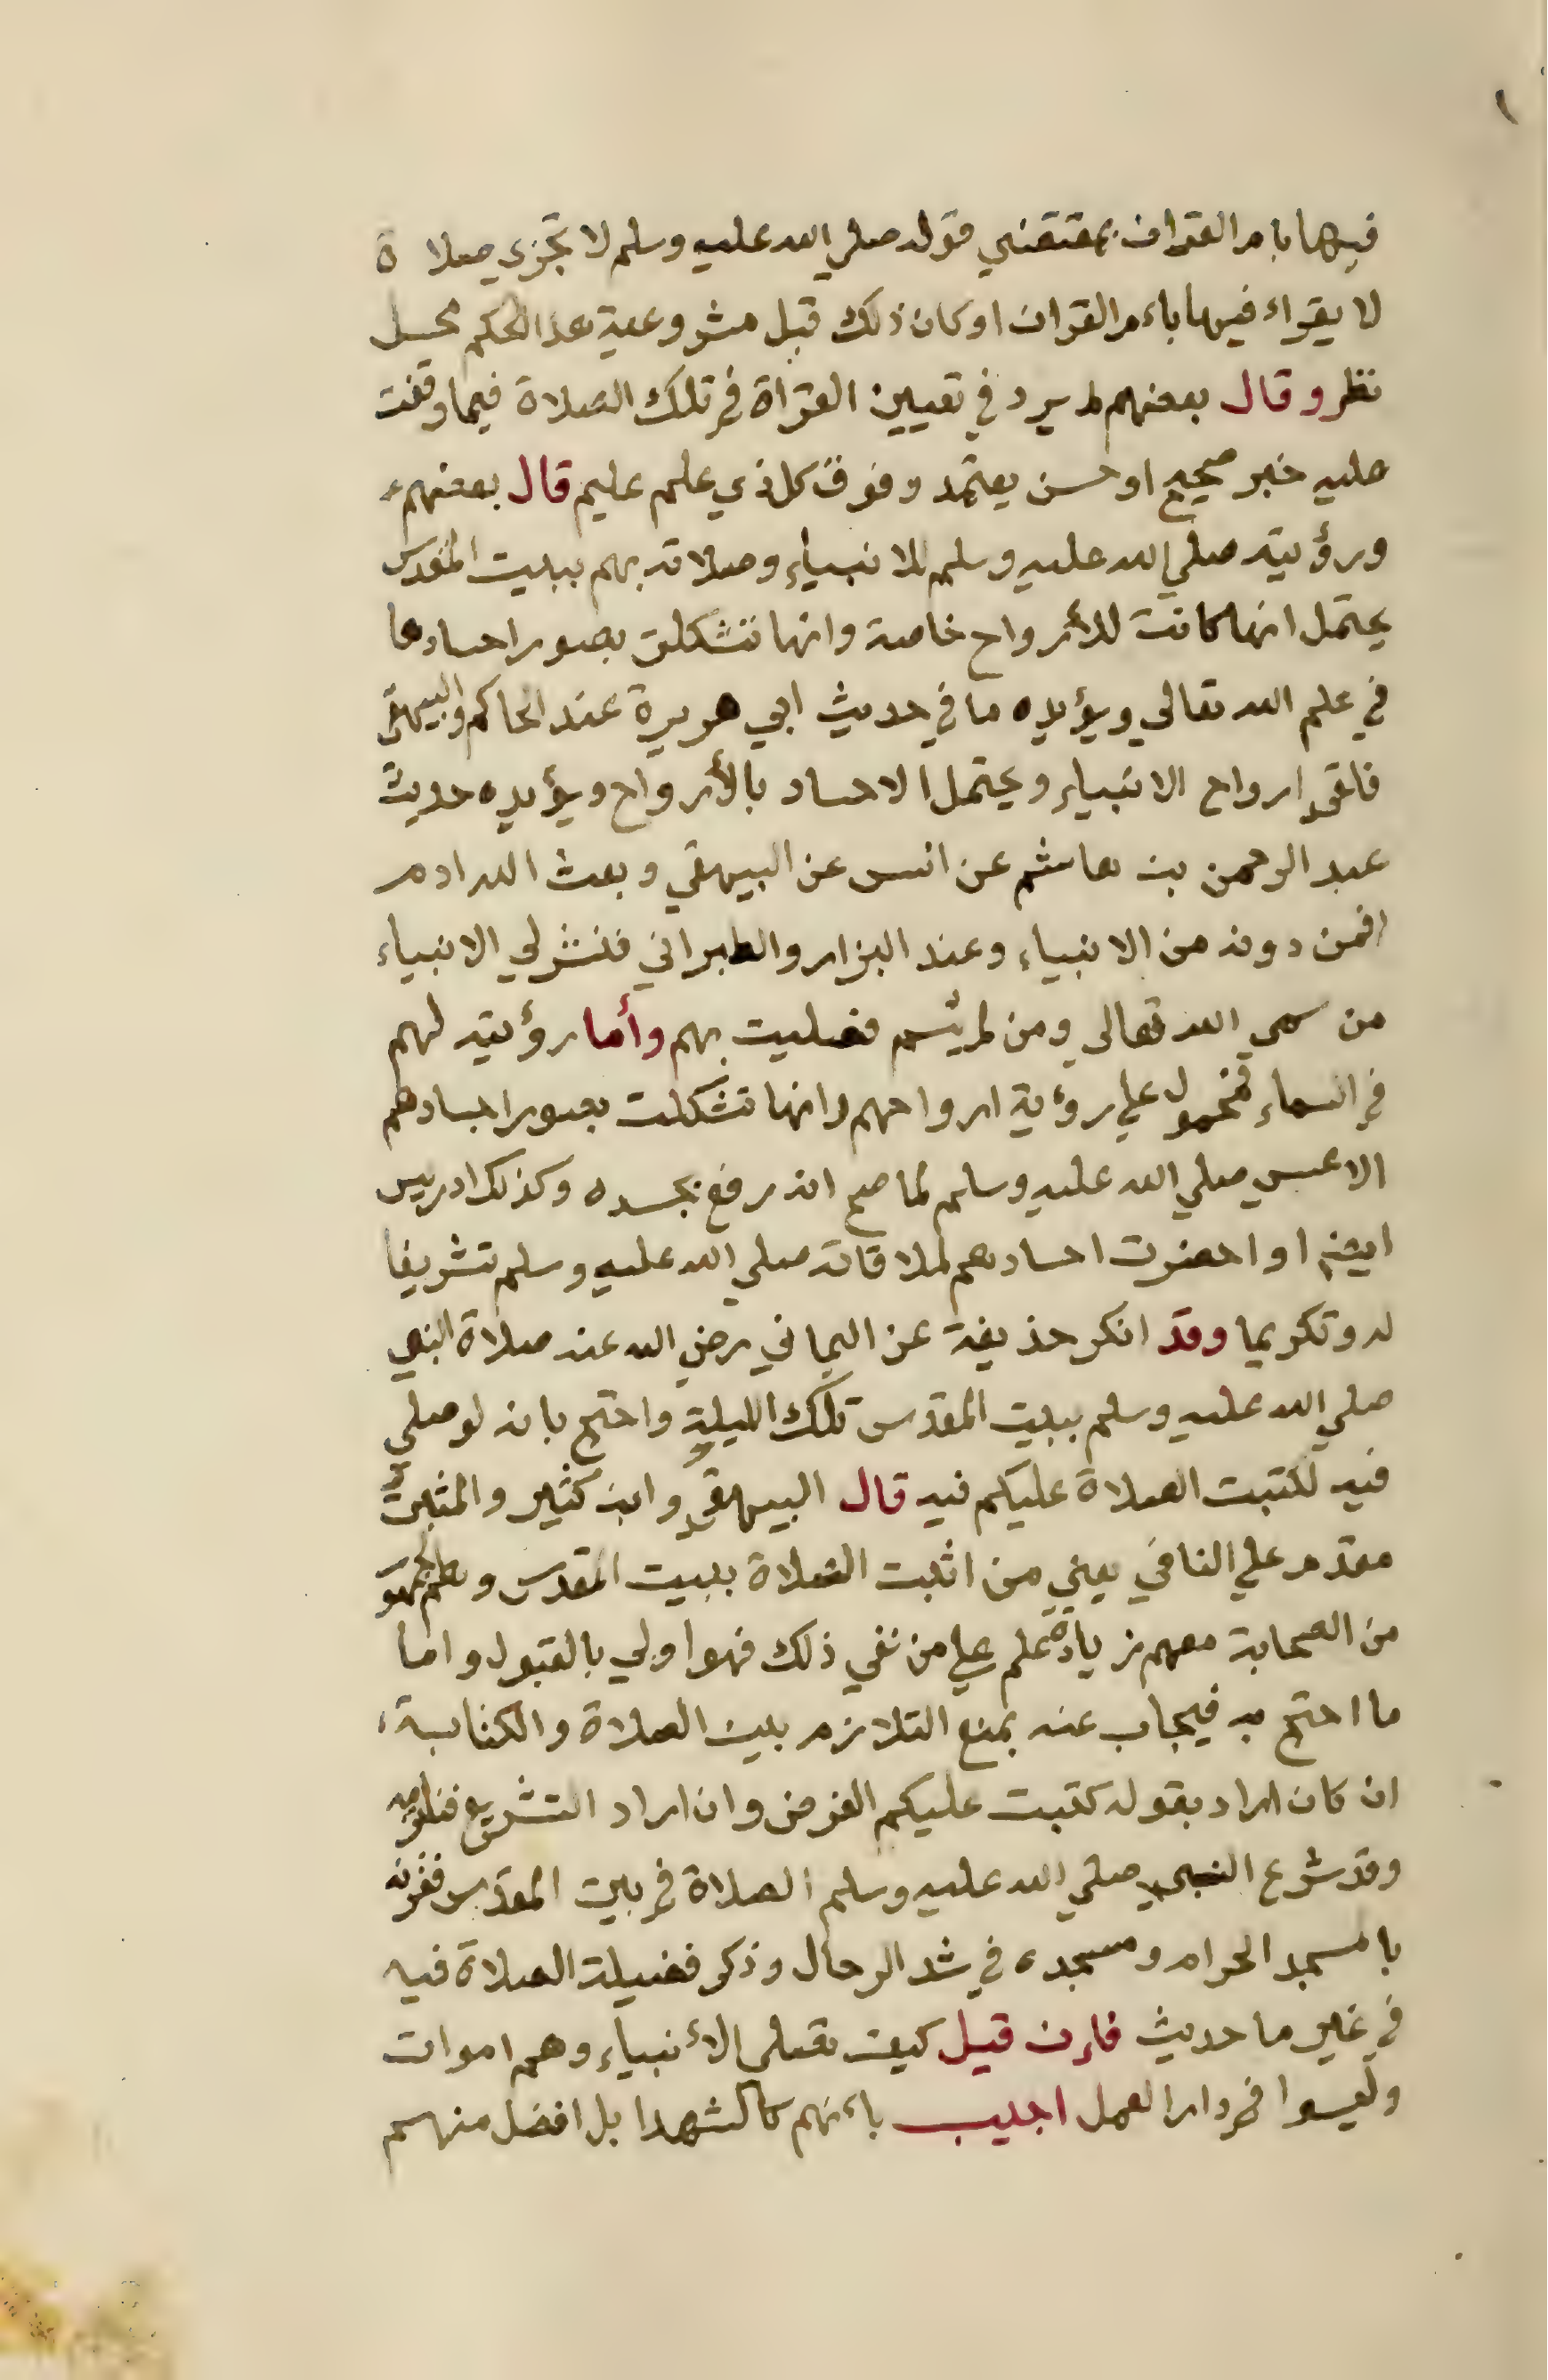 فيها بام القران بمقتضي قوله صلي الله عليه وسلم لا تجزي صلاة
لا يقراء فيها باءم القران او كان ذلك قبل مشروعية هذا الحكم محل
نظر وقال بعضهم لم يرد في تعيين القرأة في تلك الصلاة فيما وقفت
عليه خبر صحيح او حسن يعتمد وفوق كل ذي علم عليم قال بعضهم
ورؤيته صلي الله عليه وسلم للانبياء وصلاته بهم ببيت المقدس
يحتمل انها كانت للأرواح خاصة وانها تشكلت بصور اجسادها
في علم الله تعالي ويؤيده ما في حديث ابي هريرة عند الحاكم والبيهقي
فلقي ارواح الانبياء ويحتمل الاجساد بالأرواح ويؤيده حديث
عبد الرحمن بن هاشم عن انس عن البيهقي وبعث الله ادم
فمن دونه من الانبياء وعند البزار والطبراني فنشر لي الانبياء
من سمي الله تعالي ومن لم يسم فصليت بهم وأما رؤيته لهم
في السماء فمحمول علي رؤية ارواحهم وانها تشكلت بصور اجسادهم
الا عيسي صلي الله عليه وسلم لما صح انه رفع بجسده وكذلك ادريس
ايضا او احضرت اجسادهم لملاقاته صلي الله عليه وسلم تشريفا
له وتكريما وقد انكر حذيفة عن اليماني رضي الله عنه صلاة النبي
صلي الله عليه وسلم ببيت المقدس تلك الليلة واحتج بانه لو صلي
فيه لكتبت الصلاة عليكم فيه قال البيهقي وابن كثير والمثبت
مقدم علي النافي يعني من اثبت الصلاة ببيت المقدس وهم الجمهور
من الصحابة معهم زيادة علم علي من نفي ذلك فهو اولي بالقبول واما
ما احتج به فيجاب عنه بمنع التلازم بين الصلاة والكتابة
ان كان اراد بقوله كتبت عليكم الفرض وان اراد التشريع فنلتزمه
وقد شرع النبي صلي الله عليه وسلم الصلاة في بيت المقدس فقرنه
بالمسجد الحرام ومسجده في شد الرحال وذكر فضيلة الصلاة فيه
في غير ما حديث فاءن قيل كيف تصلي الأنبياء وهم اموات
وليسوا في دار العمل اجيب باءنهم كالشهدا بل افضل منهم